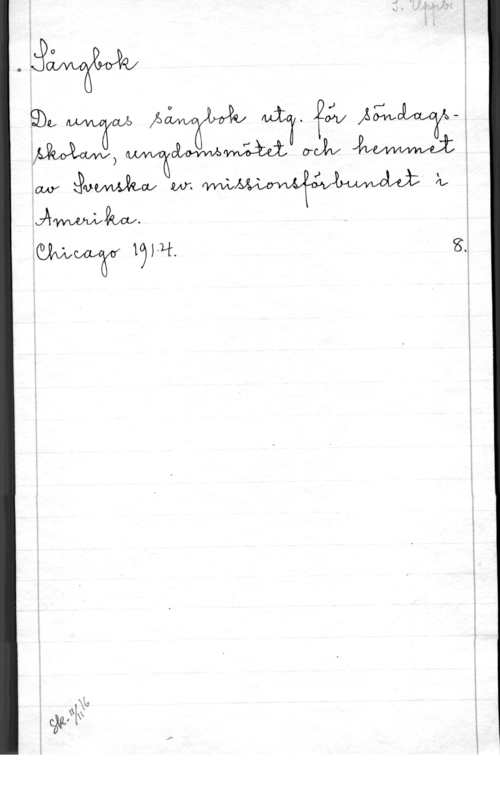 S. Uppb.
Sångbok
De ungas sångbok utg. för söndags-
skolan, ungdomsmötet och hemmet
av Svenska ev. missionsförbundet i
Amerika.
Chicago 1914. 8.
Sk. 11/11 16